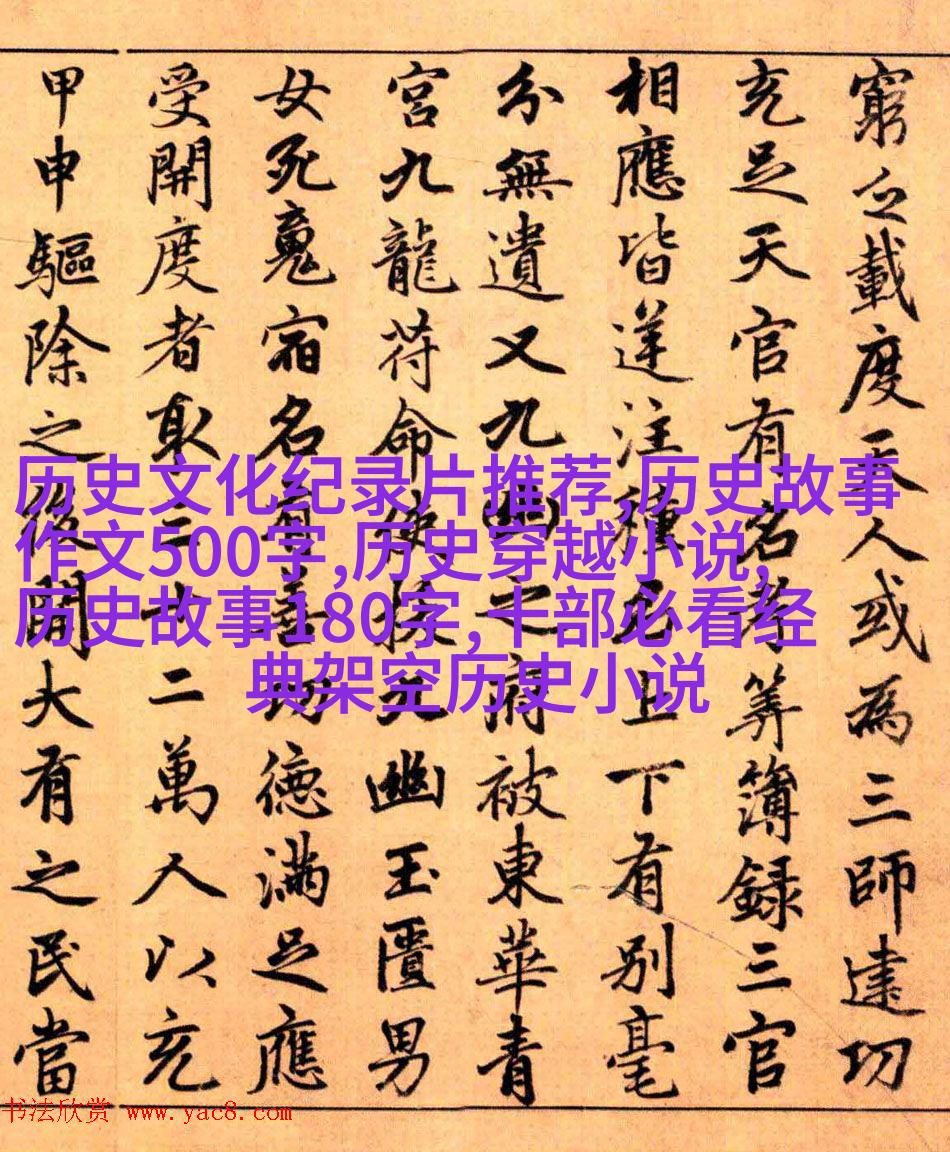 窮之載度天人或為三師建功
充足天官有名考筭簿錄三官
相應皆逆注種民上下有別毫
分無遺又九幽之府被東華青
宮九龍符命使九幽玉匱男
女死魂宿名善功德滿足應
受開度者取三十二萬人以充
甲申驅除之後開大有之民當
历史文化纪录片推荐,历史故事
作文500字,历史穿越小说,
历史故事180字,干部必看经
典架空历史小说
书法欣赏 www.yac8.com